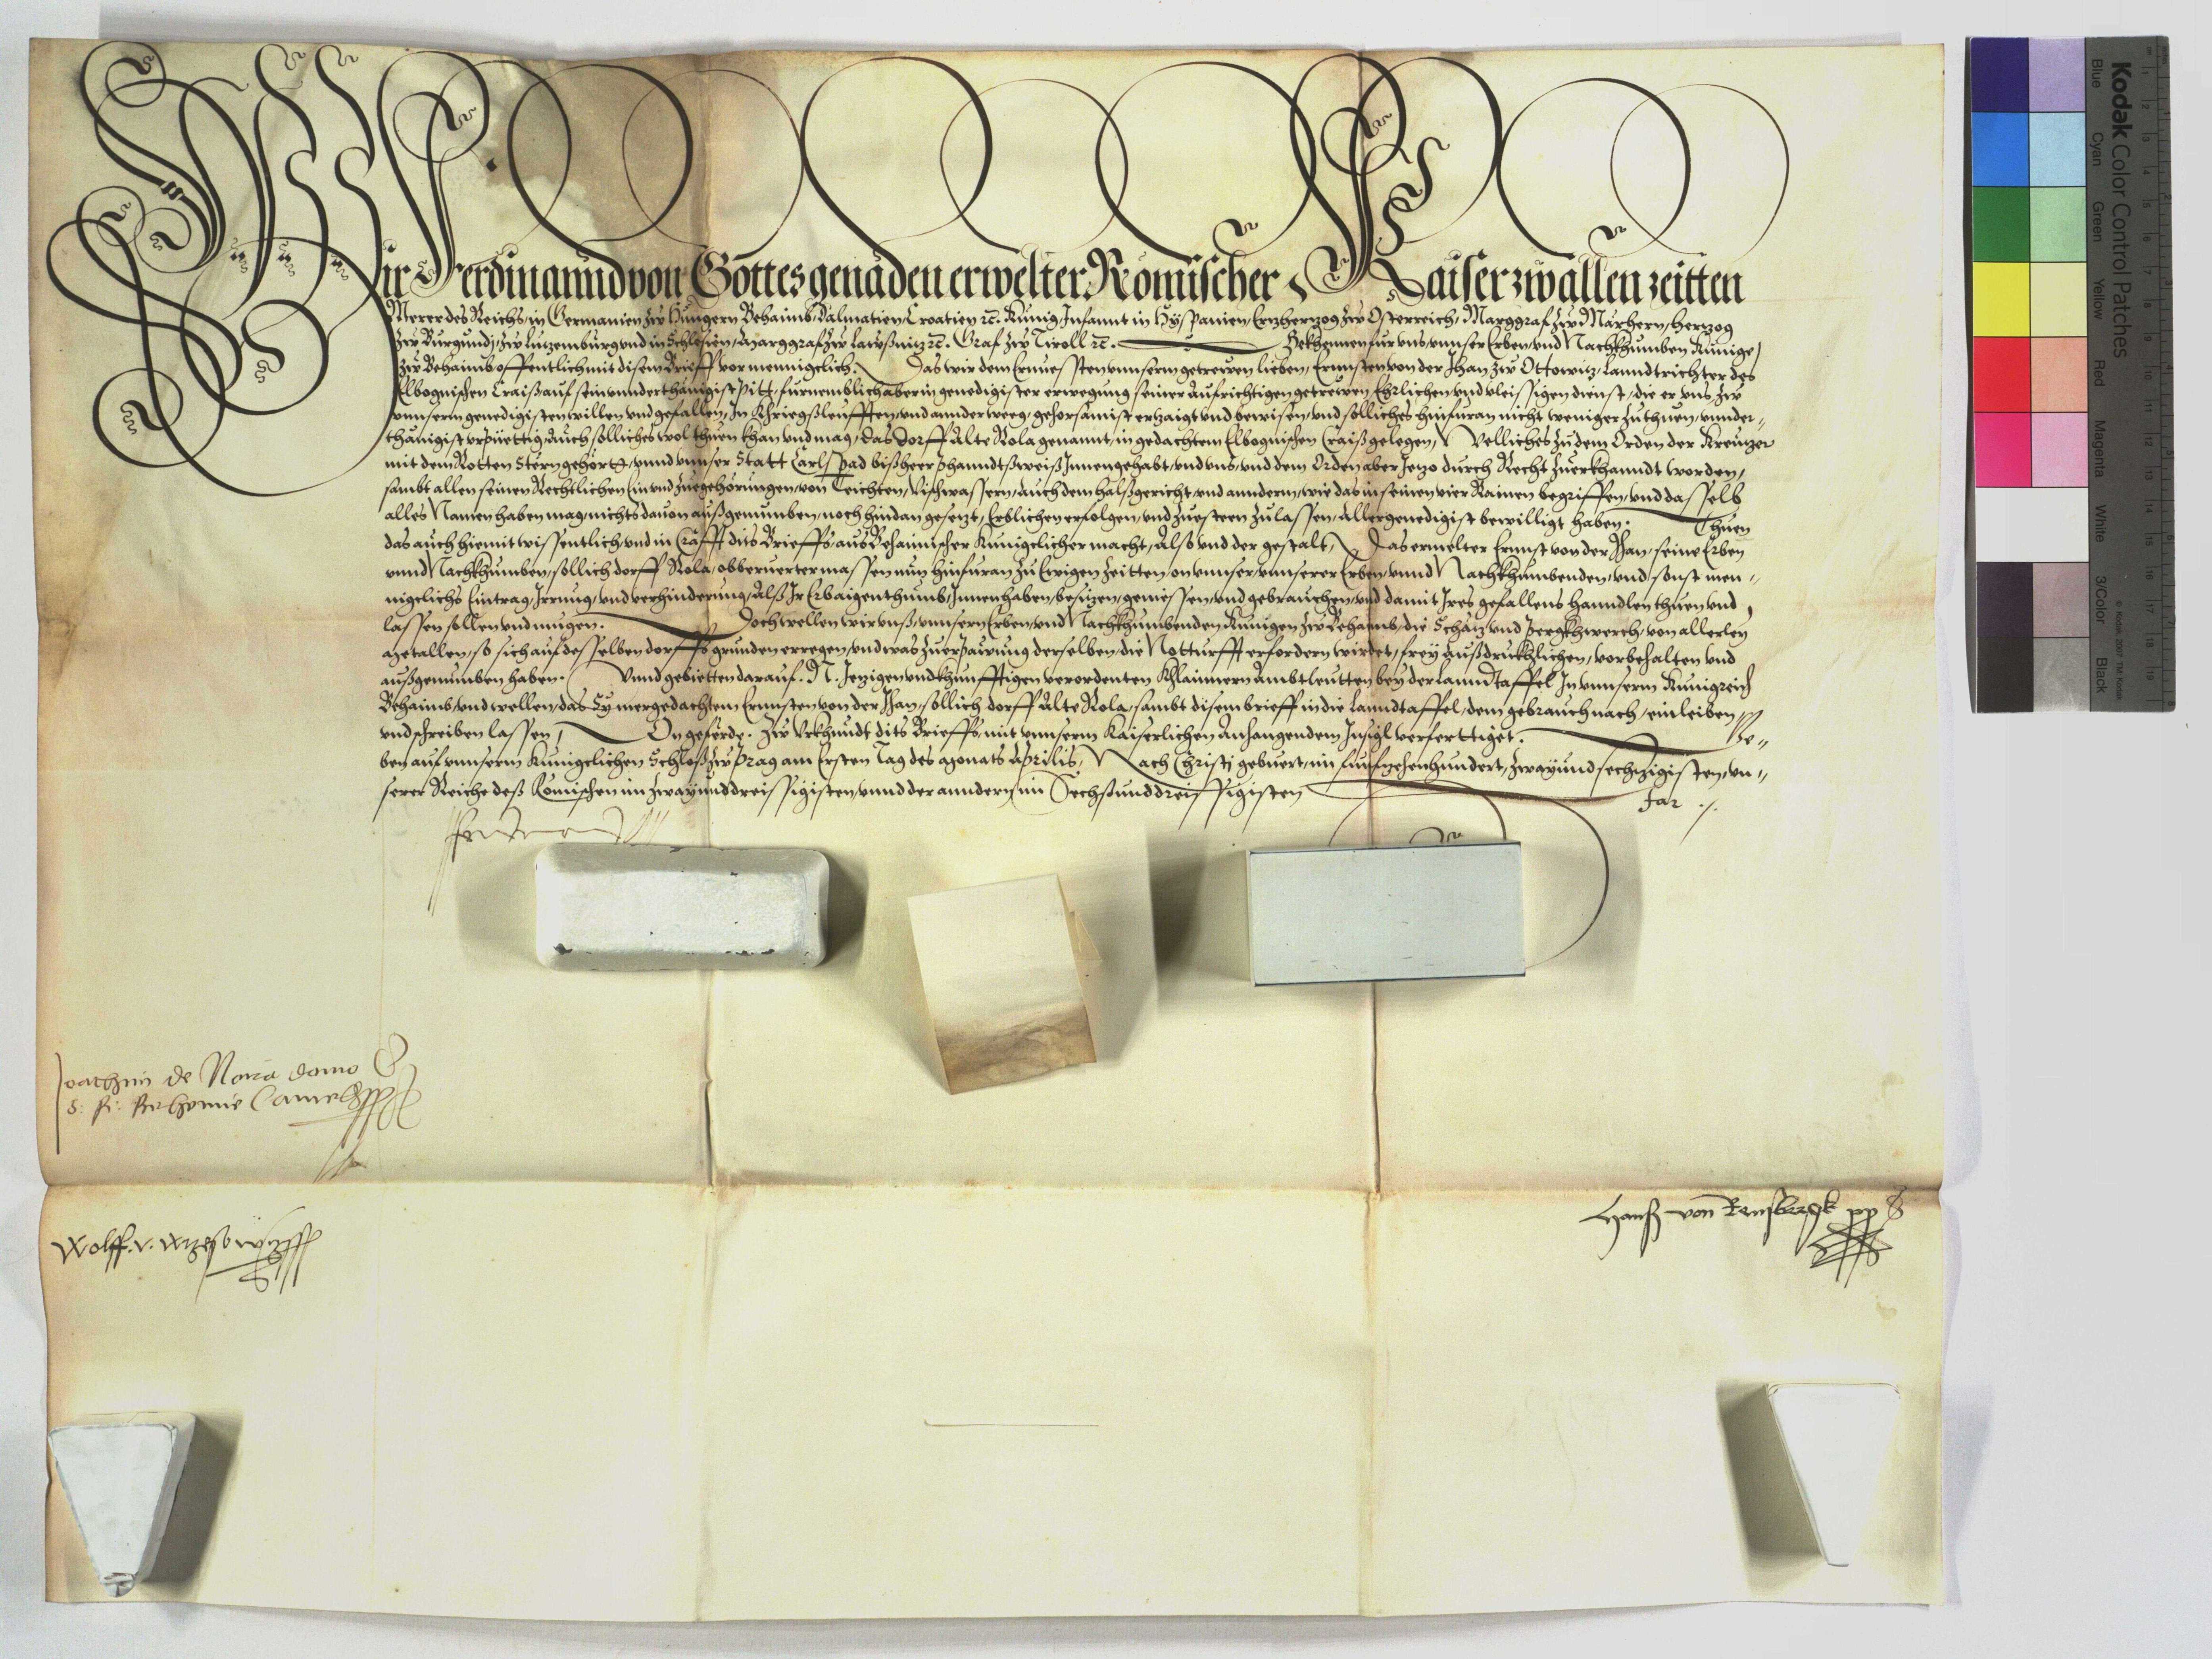 Wir Ferdinannd von Gottes genaden erwelter Römischer Kaiser zw allen zeitten
Merer des Reichs, in Germanien zw Hungern Behaimb, Dalmatien, Croatien rc̄. Kunig, Infannt in Hyspanien, Ertzherzog zw Osterreich, Marggraf zw Märhern, Herzog
zw Burgundj, zw Lutzemburg vnd in Schlesien, Marggraf zw Lawßnitz rc̄. Graf zw Tiroll rc̄. Bekhennen fur vns, vnnser Erben, vnd Nachkhumben Kunige,
zw Behaimb offentlich mit disem Brieff vor mennigclich. Das wir dem Ernuessten vnnserm getrewen lieben, Ernnsten von der Jhan zw Ottowitz, Lanndtrichter des
Elbognischen Craiß auf sein vnnderthänigist pitt, furnemblich aber in genedigister erwegung seiner aufrichtigen getrewen Ehrlichen vnd vleissigen dienst, die er vns zw
vnnserm genedigisten willen vnd gefallen, In Khriegßleufften, vnd annder weeg, gehorsamist erzaigt vnd bewisen, vnd solliches hinfuran nicht weniger zu thuen, vnnder-
thänigist vrpüettig, auch solliches wol thuen khan vnd mag, das dorff alte Rola genannt, in gedachtem Elbognischen Craiß gelegen, Welliches zu dem Orden der Kreutzer
mit dem Rotten Stern gehört, vnnd vnnser Statt Carlspad bißheer phanndtßweiß Innengehabt, vnd vns, vnd dem Orden aber Jetzo durch Recht zuerkhanndt worden,
sambt allen seinen Rechtlichen Ein vnd Zuegehörungen, von Teichten, vischwassern, auch dem halßgericht, vnd annderm, wie das in seinen vier Rainen begriffen, vnd dasselb
alles Namen haben mag, nichts dauon außgenumben, noch hindan gesetzt, Erblichen erfolgen, vnd zuesteen zulassen, allergenedigist bewilligt haben. Thuen
das auch hiemit wissentlich, vnd in Crafft dits Brieffs, aus Behaimischer Kunigclicher macht, Also vnd der gestalt, Das ermelter Ernnst von der Jhan, seine Erben
vnnd Nachkhumben, sollich dorff Rola, obberuerter massen nun hinfuran zu Ewigen Zeitten, on vnnser, vnnserer Erben, vnnd Nachkhumbenden, vnd sonst men-
nigclichs Eintrag, Irrung, vnd verhinderung, Alß Ir Erbaigenthumb, Innenhaben, besitzen, geniessen, vnd gebrauchen, vnd damit Ires gefallens hanndlen thuen vnd,
lassen sollen vnd mugen. Doch wellen wir vnß, vnnsern Erben, vnd Nachkhumbenden Kunigen zw Behaimb, die Schätz vnd Pergkhwerch, von allerley
Metallen, so sich auf desselben dorffs grunden erregen, vnd was zuerpawung derselben, die Notturfft erfordern wirdet, frey außdrukhlichen, vorbehalten vnd
außgenumben haben. Vnnd gebietten darauf. N. Jetzigen vnd khunfftigen verordenten Khlainnern Ambtleutten bey der Lanndtaffel In vnnserm Kunigreich
Behaimb, vnd wellen, das Sy mergedachtem Ernnsten von der Jhan, sollich dorff Alte Rola, sambt disem brieff in die Lanndtaffel, dem gebrauch nach, einleiben
vnd schreiben lassen, On geferde. Zw Vrkhundt dits Brieffs, mit vnnserm Kaiserlichen Anhangendem Insigl verferttiget. Ge-
ben auf vnnserm Kunigclichen Schloß zw Prag am Ersten Tag des Monats Aprilis, Nach Christj gebuert, im funfzehenhundert, zway vnd sechtzigisten, vn-
serer Reiche deß Römischen im zway vnnd dreissigisten, vnnd der anndern im Sechsunddreissigisten Jar ./.
Joachim de Noua domo
S: R: Bohemie Cancel
Wolff. v. Wrzesowytz
Hanß von
Kodak Color Control Patches
Blue Cyan Green Yellow Red Magenta White 3/Color Black
© Kodak, 2007 TM: Kodak